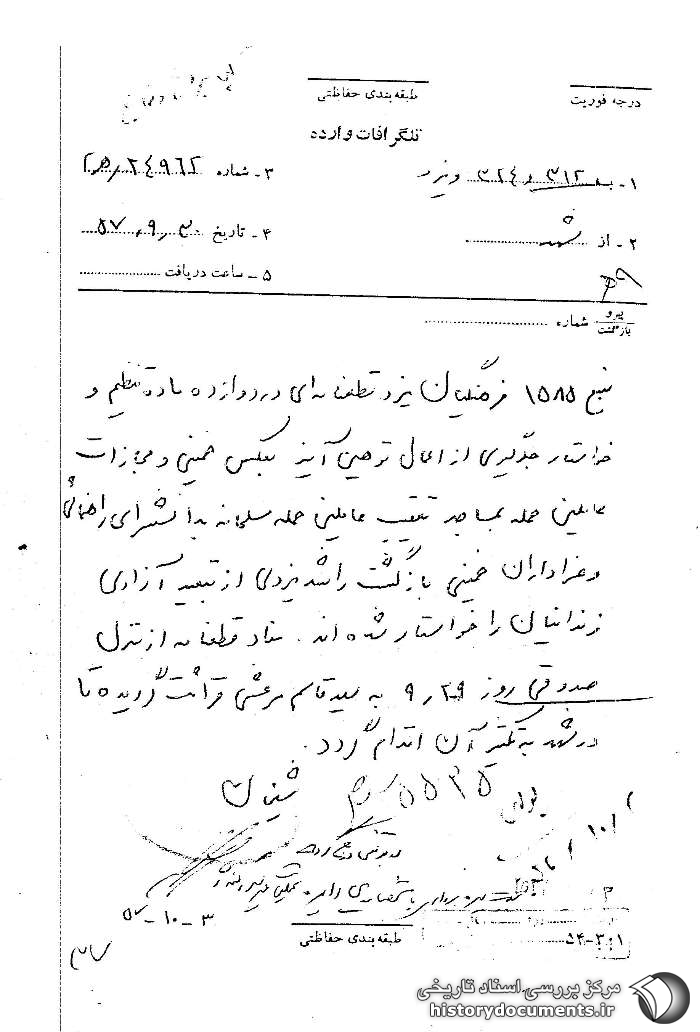 درجه فوریت
طبقه‌بندی حفاظتی
تلگرافات وارده
۱ - به ۳۱۲ و ۳۲۴ و یزد
۳ - شماره ۲۴۹۶۲
۲ - از مشهد
۴ - تاریخ ۵۷٫۹٫۳۰
۵ - ساعت دریافت
پیرو
بازگشت شماره
منبع ۱۵۸۵ فرهنگیان یزد قطعنامه‌ای در دوازده ماده تنظیم و
خواستار جلوگیری از اعمال توهین آمیز بعکس خمینی و مجازات
عاملین حمله بمساجد تعقیب عاملین حمله مسلحانه بدانشسرای راهنمائی
و عزاداران خمینی بازگشت راشد یزدی از تبعید آزادی
زندانیان را خواستار شده‌اند. مفاد قطعنامه از منزل
صدوقی روز ۹٫۲۹ به سید قاسم مرعشی قرائت گردیده تا
در مشهد به تکثیر آن اقدام گردد.
شیخان
۵۷-۱۰-۳
طبقه‌بندی حفاظتی
۵۴-۳:۱
۳۷
مرکز بررسی اسناد تاریخی
historydocuments.ir